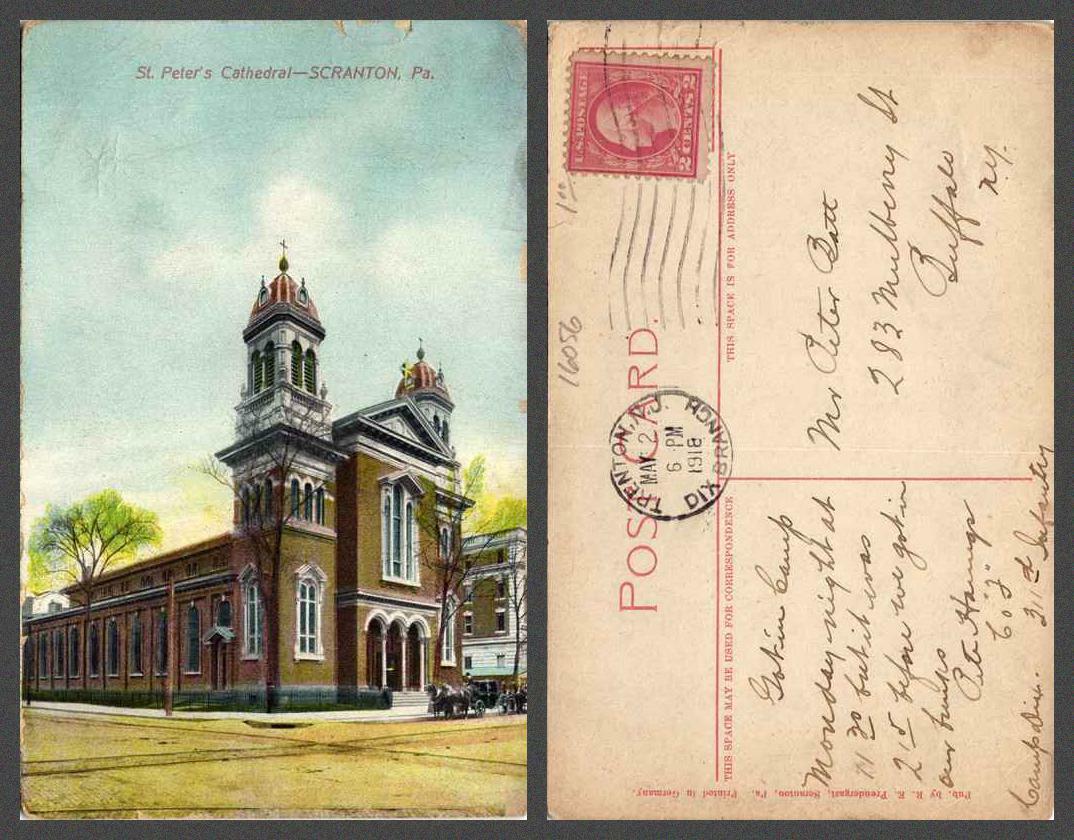 St. Peter's Cathedral—SCRANTON, Pa.
U.S. POSTAGE
2 CENTS 2
1.00
16056
POST CARD.
TRENTON, N.J.
MAY 2
6 PM
1918
DIX BRANCH
THIS SPACE MAY BE USED FOR CORRESPONDENCE
THIS SPACE IS FOR ADDRESS ONLY
Got in Camp
Monday night at
11 30 but it was
2 15 before we got in
our bunks
Pete
Co "I"
311th Infantry
Camp Dix.
Mr Peter Batt
283 Mulberry St
Buffalo
N.Y.
Pub. by R. E. Prendergast, Scranton, Pa. Printed in Germany.